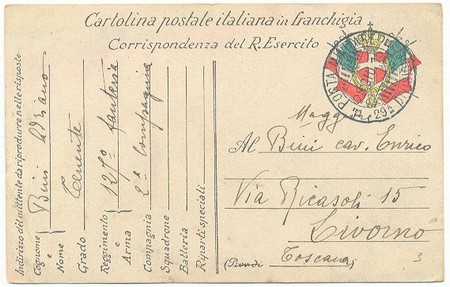 Cartolina postale italiana in franchigia
Corrispondenza del R. Esercito
Indirizzo del mittente da riprodurre nelle risposte
Cognome e Nome Bini Adriano
Grado Tenente
Reggimento e Arma 127° fanteria
Compagnia 2ª Compagnia
Squadrone
Batteria
Riparti speciali
POSTA
29
Magg.
Al Bini cav. Enrico
Via Ricasoli 15
Livorno
Toscana)
3